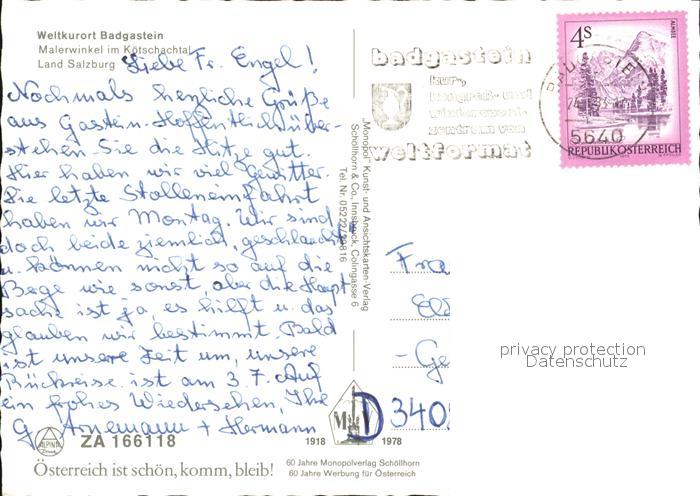 Weltkurort Badgastein
Malerwinkel im Kötschachtal
Land Salzburg
Liebe Fr. Engel!
Nochmals herzliche Grüße
aus Gastein. Hoffentlich über-
stehen Sie die Hitze gut.
Hier haben wir viel Gewitter.
Die letzte Stolleneinfahrt
haben wir Montag. Wir sind
doch beide ziemlich geschlaucht
u. können nicht so auf die
Berge wie sonst, aber die Haupt
sache ist ja, es hilft u. das
glauben wir bestimmt. Bald
ist unsere Zeit um, unsere
Rückreise ist am 3.7. Auf
ein frohes Wiedersehen, Ihre
G. Arnemann + Hermann
ALPINA
ZA 166118
Österreich ist schön, komm, bleib!
„Monopol" Kunst- und Ansichtskarten-Verlag
Schöllhorn & Co, Innsbruck, Colingasse 6
Tel Nr. 05222/
816
1918
M V
1978
60 Jahre Monopolverlag Schöllhorn
60 Jahre Werbung für Österreich
badgastein
kur-,
kongreß- und
wintersport-
zentrum von
weltformat
4S
ALMSEE
5640
REPUBLIK ÖSTERREICH
Fra
- Ge
D 340
privacy protection
Datenschutz